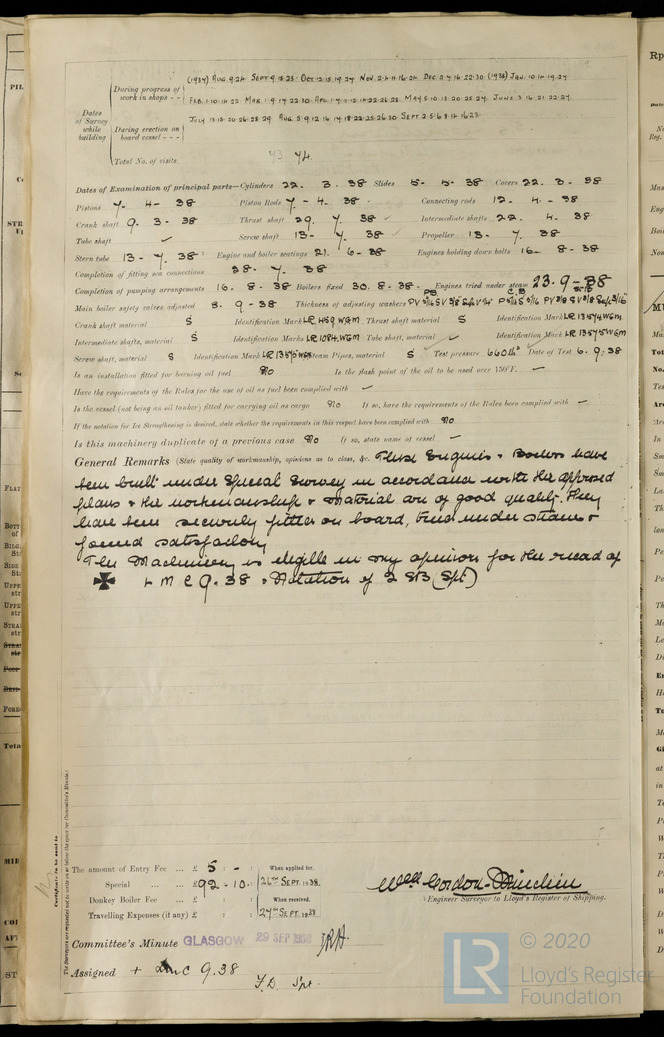 During progress of work in shops - - (1937) AUG. 9.24. SEPT. 9.15.23. OCT. 12.15.19.27. NOV. 2.4.11.16.24. DEC. 2.7.16.22.30. (1938) JAN. 10.14.19.27.
FEB. 1.10.14.22. MAR. 1.9.17.22.30. APR.
Dates of Survey while building
During erection on board vessel - - - JULY 13.15.20.26.28.29. AUG. 5.9.12.16.17.18.22.25.26.30. SEPT. 2.5.6.8.14.16.23.
Total No. of visits 74
Dates of Examination of principal parts—Cylinders 22. 3. 38 Slides 5- 5- 38 Covers 22. 3 - 38
Pistons 7. 4- 38 Piston Rods 7 - 4. 38 Connecting rods 12. 4. - 38
Crank shaft 9. 3- 38 Thrust shaft 29. 7. 38 ✓ Intermediate shafts 22. 4. 38
Tube shaft ✓ Screw shaft 13- 7. 38 ✓ Propeller 13- 7. 38
Stern tube 13- 7. 38 Engine and boiler seatings 21. 6-38 Engines holding down bolts 16- 8-38
Completion of fitting sea connections 28. 7. 38
Completion of pumping arrangements 16. 8-38 Boilers fixed 30. 8-38. Engines tried under steam 23.9-38
Main boiler safety valves adjusted 8. 9-38 Thickness of adjusting washers
Crank shaft material S Identification Mark LR 459 WGM Thrust shaft material S Identification Mark LR 13574 WGM
Intermediate shafts, material S Identification Marks LR 1084 WGM Tube shaft, material ✓ Identification Mark LR 13575 WGM
Screw shaft, material S Identification Mark LR 13575 WGM Steam Pipes, material S Test pressure 660 lbs Date of Test 6. 9. 38
Is an installation fitted for burning oil fuel No Is the flash point of the oil to be used over 150°F. —
Have the requirements of the Rules for the use of oil as fuel been complied with —
Is the vessel (not being an oil tanker) fitted for carrying oil as cargo No If so, have the requirements of the Rules been complied with —
If the notation for Ice Strengthening is desired, state whether the requirements in this respect have been complied with No
Is this machinery duplicate of a previous case No If so, state name of vessel —
General Remarks (State quality of workmanship, opinions as to class, &c. These Engines & Boilers have
been built under Special Survey in accordance with the approved
plans & the workmanship & material are of good quality. They
have been securely fitted on board, tried under steam &
found satisfactory
The Machinery is eligible in my opinion for the record of
✠ L M C 9.38 & Notation of 2 SB (Spt)
The amount of Entry Fee ... £ 5 : - : When applied for.
Special ... ... £ 92 . 10. : 26th SEPT. 1938.
Donkey Boiler Fee ... £ : : When received.
Travelling Expenses (if any) £ : : 27th SEPT. 1938
Engineer Surveyor to Lloyd's Register of Shipping.
Committee's Minute GLASGOW 29 SEP 1938
Assigned + LMC 9.38
F.D. Spt.
Certificate to be sent to
© 2020
LR
Lloyd's Register
Foundation